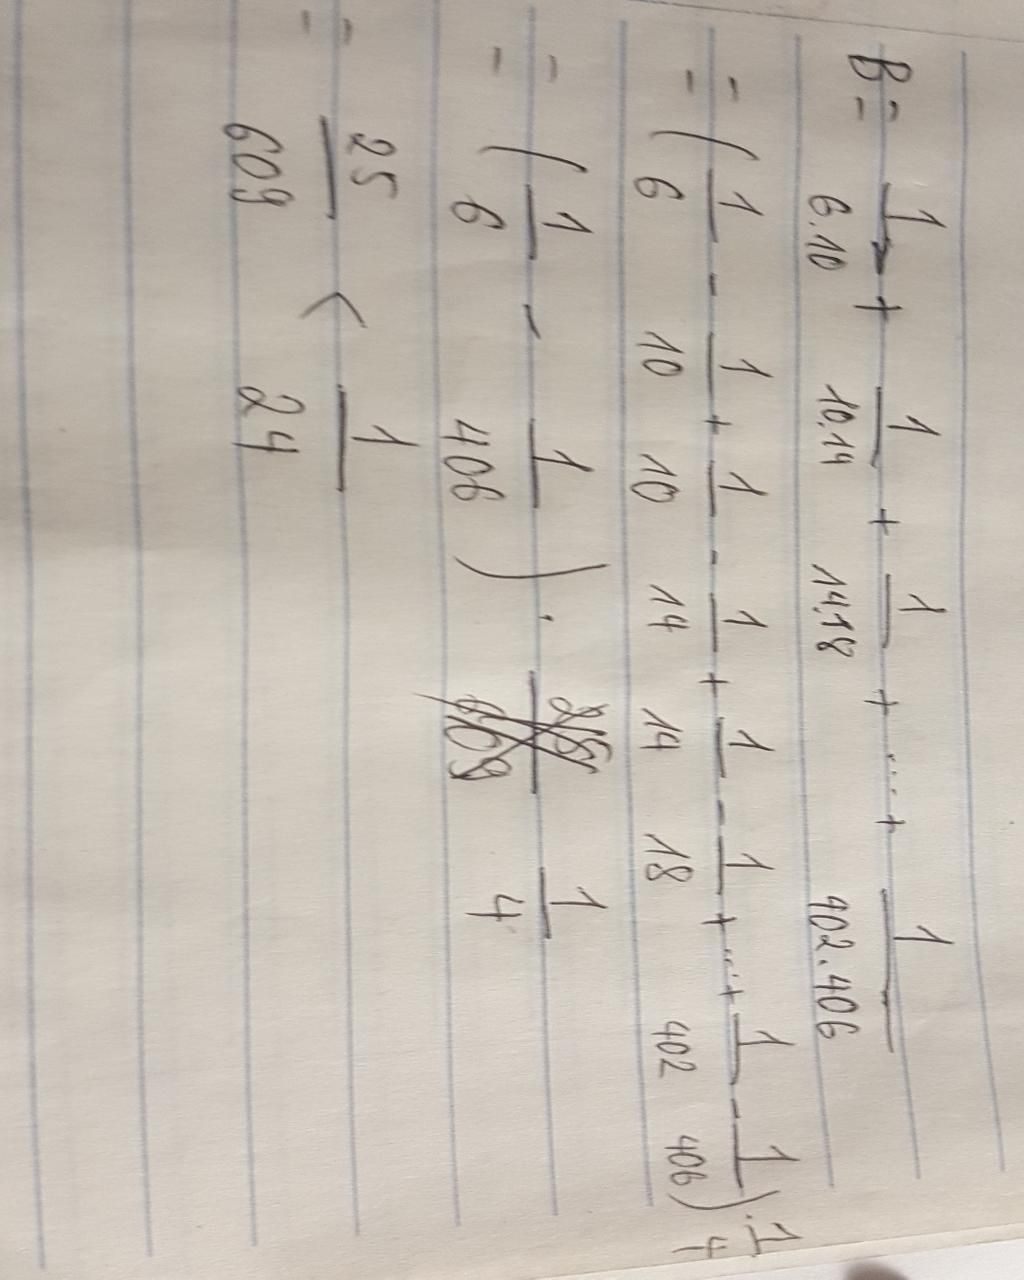 B = 1/6.10 + 1/10.14 + 1/14.18 + ... + 1/402.406
= (1/6 - 1/10 + 1/10 - 1/14 + 1/14 - 1/18 + ... + 1/402 - 1/406) . 1/4
= (1/6 - 1/406) . 1/4
= 25/609 < 1/24